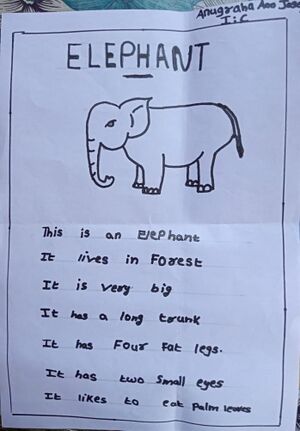 Anugraha Ann Jose
I.C
ELEPHANT
This is an Elephant
It lives in Forest
It is very big
It has a long trunk
It has Four Fat legs.
It has two small eyes
It likes to eat palm leaves